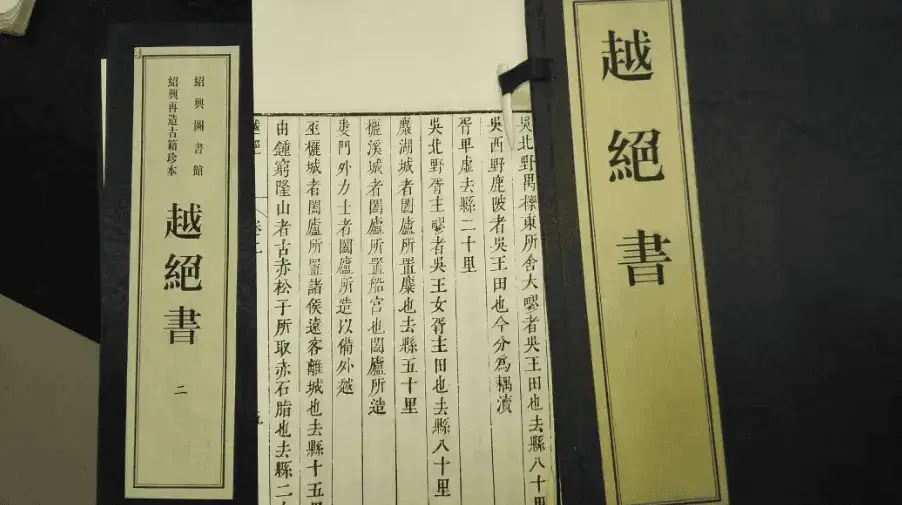 越絕書
吳北野禺櫟東所舍大疁者吳王田也去縣八十里
吳西野鹿陂者吳王田也今分為耦瀆
胥卑虛去縣二十里
吳北野胥主疁者吳王女胥主田也去縣八十里
麋湖城者闔廬所置麋也去縣五十里
欐溪城者闔廬所置船宮也闔廬所造
婁門外力士者闔廬所造以備外越
巫欐城者闔廬所置諸侯遠客離城也去縣十五里
由鍾窮隆山者古赤松子所取赤石脂也去縣二
卷二
紹興圖書館
紹興再造古籍珍本
越絕書
二